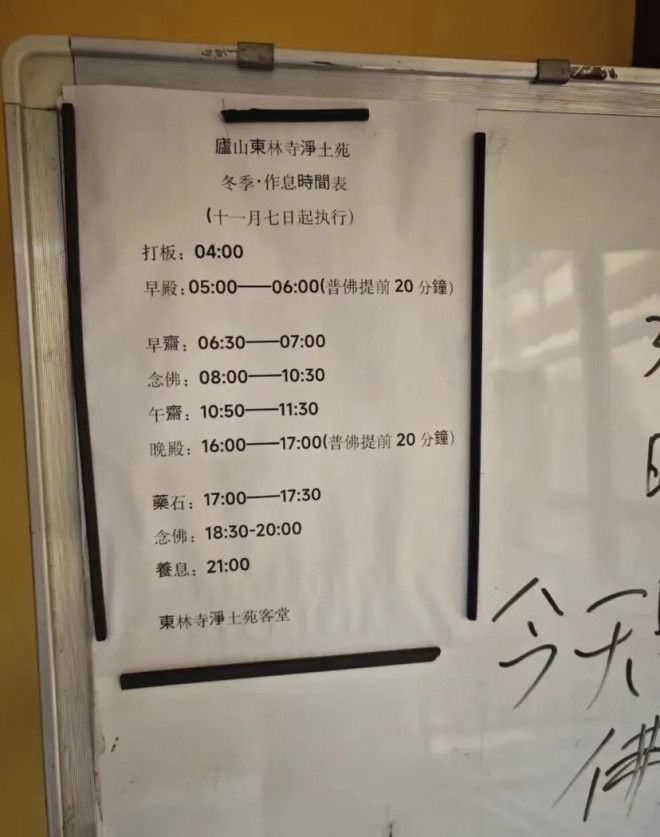 廬山東林寺淨土苑
冬季·作息時間表
(十一月七日起执行)
打板：04:00
早殿：05:00——06:00(普佛提前 20 分鐘)
早齋：06:30——07:00
念佛：08:00——10:30
午齋：10:50——11:30
晚殿：16:00——17:00(普佛提前 20 分鐘)
藥石：17:00——17:30
念佛：18:30-20:00
養息：21:00
東林寺淨土苑客堂
今天
佛